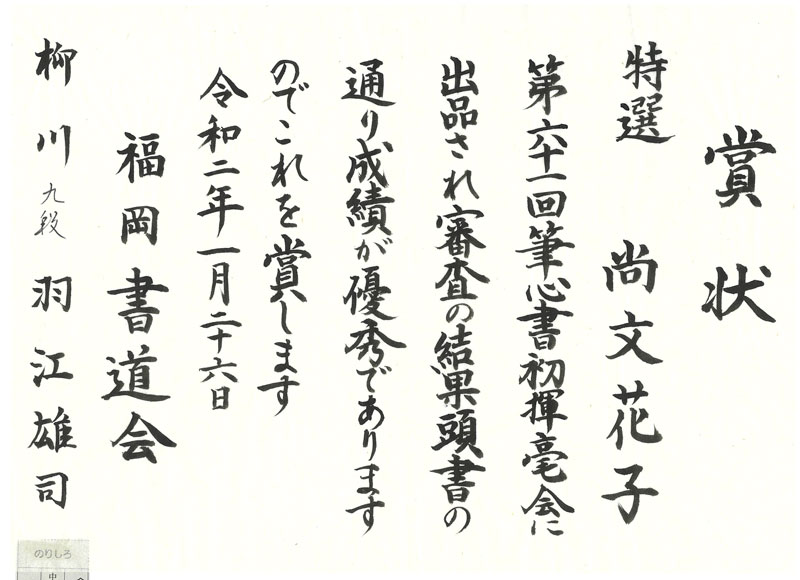 賞状
特選 尚文花子
第六十一回筆心書初揮毫会に
出品され審査の結果頭書の
通り成績が優秀であります
のでこれを賞します
令和二年一月二十六日
福岡書道会
柳川 九段 羽江雄司
のりしろ
中